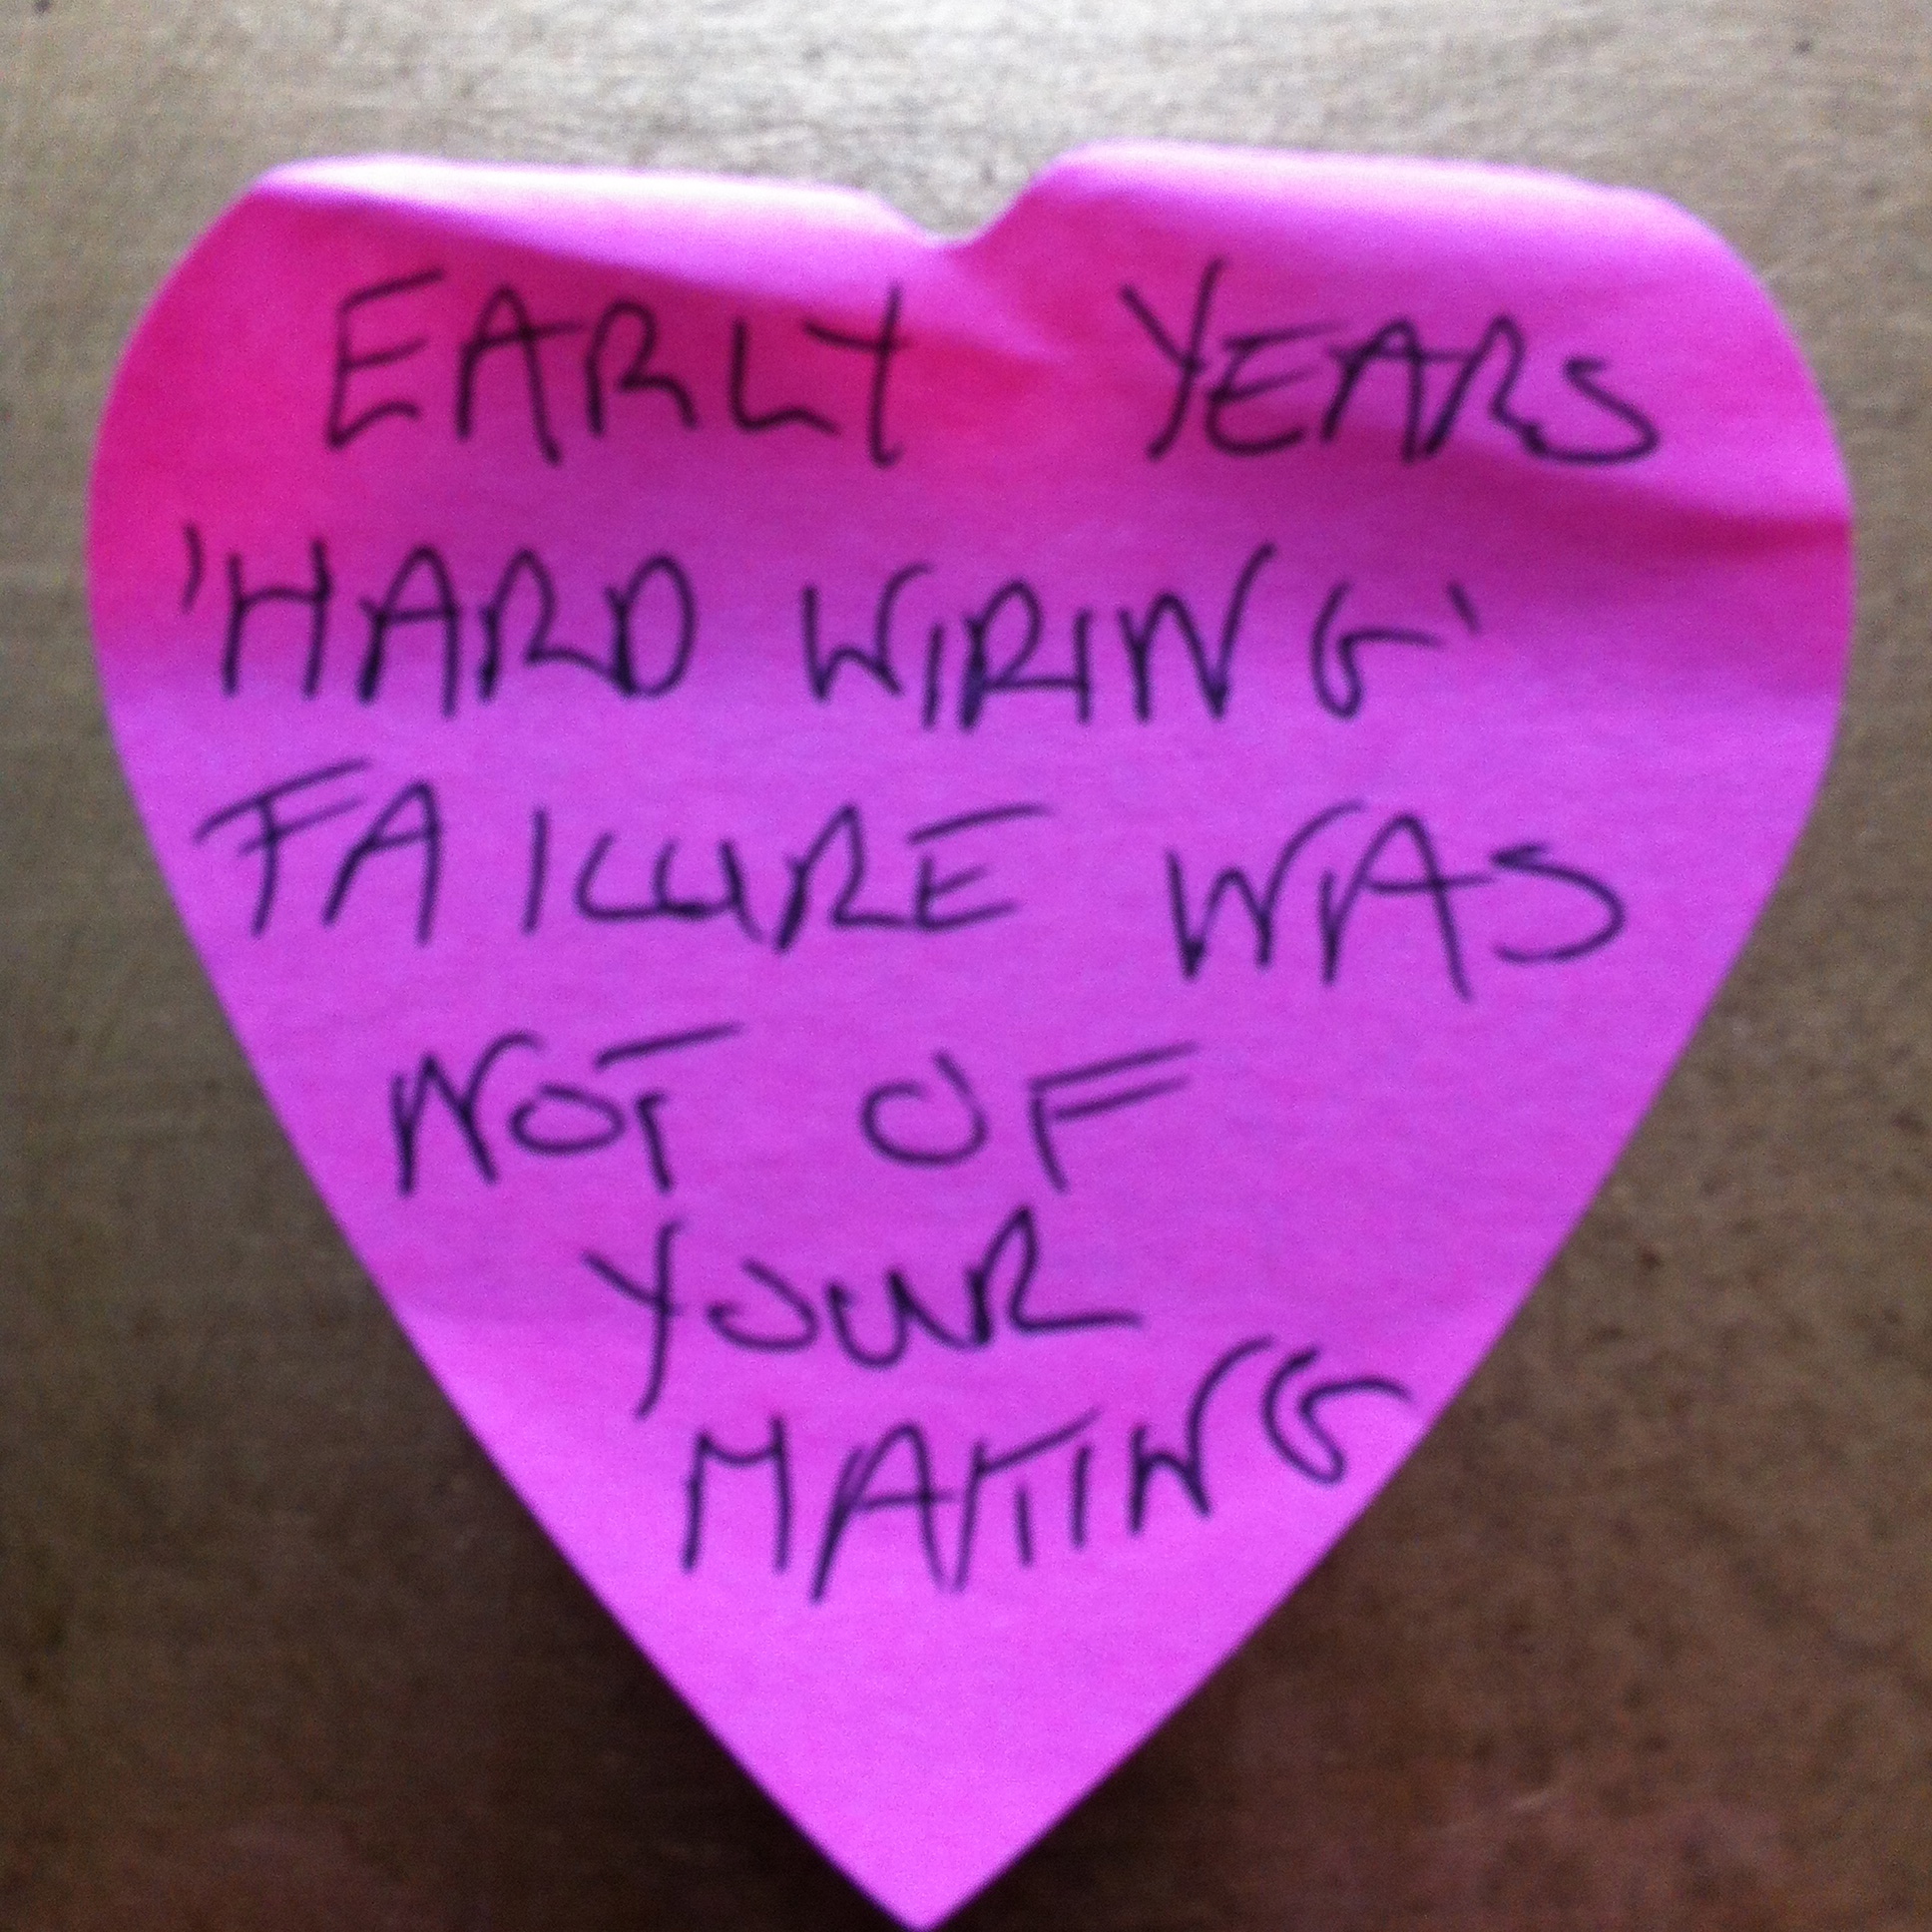 EARLY YEARS
'HARD WIRING'
FAILURE WAS
NOT OF
YOUR
MAKING